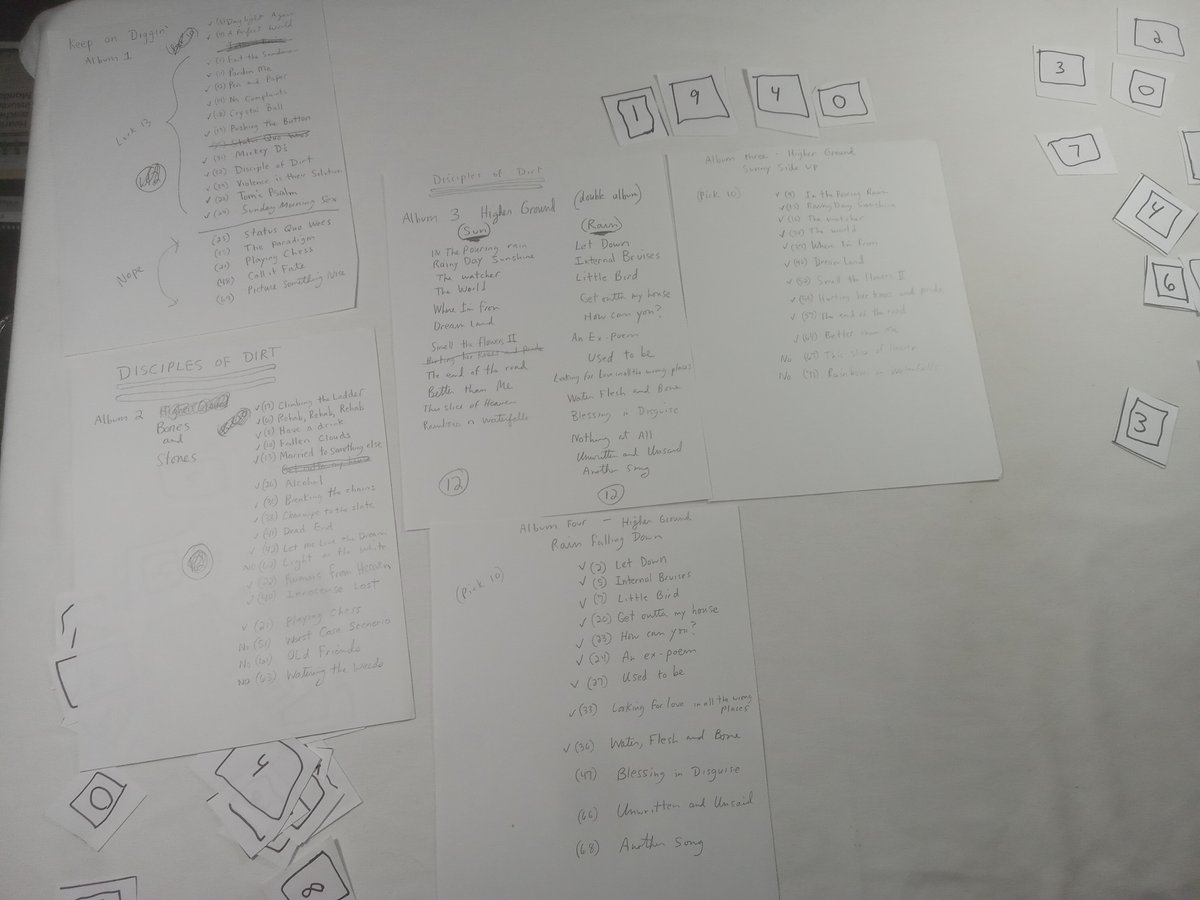 Keep on Diggin'
Album 1
Lock 13
✓ (3) Daylight Again
✓ (4) A Perfect World
✓ (1) Exit the Sandman
✓ (9) Pardon Me
✓ (12) Pen and Paper
✓ (14) No Complaints
✓ (18) Crystal Ball
✓ (19) Pushing the Button
Status Quo Woes
✓ (31) Mickey D's
✓ (32) Disciple of Dirt
✓ (35) Violence is their Solution
✓ (28) Tom's Psalm
✓ (29) Sunday Morning Sex
Nope
(25) Status Quo Woes
(13) The Paradigm
(21) Playing Chess
(48) Call it Fate
(69) Picture Something Nice
DISCIPLES OF DIRT
Album 2 Higher Ground
Bones
and
Stones
✓ (17) Climbing the Ladder
✓ (6) Rehab, Rehab, Rehab
✓ (8) Have a drink
✓ (10) Fallen Clouds
✓ (13) Married to Something else
Get outta my house
✓ (26) Alcohol
✓ (35) Breaking the chains
✓ (38) to the slate
✓ (41) Dead End
✓ (42) Let me Live the Dream
No Light on the White
✓ (22) Rumors from Heaven
✓ (40) Innosense Lost
✓ (21) Playing Chess
No (51) Worst Case Scenerio
No (61) OLd Friends
No (63) Watering the Weeds
Disciples of Dirt
Album 3 Higher Ground (double album)
(Sun)
IN The Pouring rain
Rainy Day Sunshine
The watcher
The World
Where Im From
Dream Land
Smell the Flowers II
Hurting her knees and pride
The end of the road
Better than Me
This slice of Heaven
Rainbows n Waterfalls
12
(Rain)
Let Down
Internal Bruises
Little Bird
Get outta my house
How can you?
An Ex-poem
Used to be
Looking for Love in all the wrong places
Water Flesh and Bone
Blessing in Disguise
Nothing at All
Unwritten and Unsaid
Another Song
12
Album three - Higher Ground
Sunny Side Up
(Pick 10)
✓ (9) In the Pouring Rain
✓ (15) Rainy Day Sunshine
✓ (16) The watcher
✓ (30) The world
✓ (39) Where Im From
✓ (46) Dream Land
✓ (52) Smell the Flowers II
✓ (54) Hurting her knees and pride
✓ (57) The end of the road
✓ (64) Better than me
No (67) This slice of heaven
No (70) Rainbows n Waterfalls
Album Four - Higher Ground
Rain Falling Down
(Pick 10)
✓ (2) Let Down
✓ (5) Internal Bruises
✓ (7) Little Bird
✓ (20) Get outta my house
✓ (23) How can you?
✓ (24) An ex-poem
✓ (27) Used to be
✓ (33) Looking for love in all the wrong
places
✓ (36) Water, Flesh and Bone
(47) Blessing in Disguise
(66) Unwritten and Unsaid
(68) Another Song
1 9 4 0
2
3
0
7
4
6
3
0
5
8